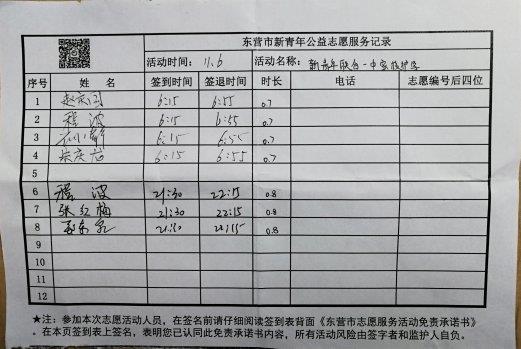 东营市新青年公益志愿服务记录
活动时间： 11.6 活动名称： 新青年联合一中家校护学
序号 姓 名 签到时间 签退时间 时长 电话 志愿编号后四位
1 6:15 6:55 0.7
2 程波 6:15 6:55 0.7
3 6:15 6:55 0.7
4 6:15 6:55 0.7
5
6 程波 21:30 22:15 0.8
7 张红梅 21:30 22:15 0.8
8 21:30 22:15 0.8
9
10
11
12
★注：参加本次志愿活动人员，在签名前请仔细阅读签到表背面《东营市志愿服务活动免责承诺书》
。在本页签到表上签名，表明您已认同此免责承诺书内容，所有活动风险由签字者和监护人自负。